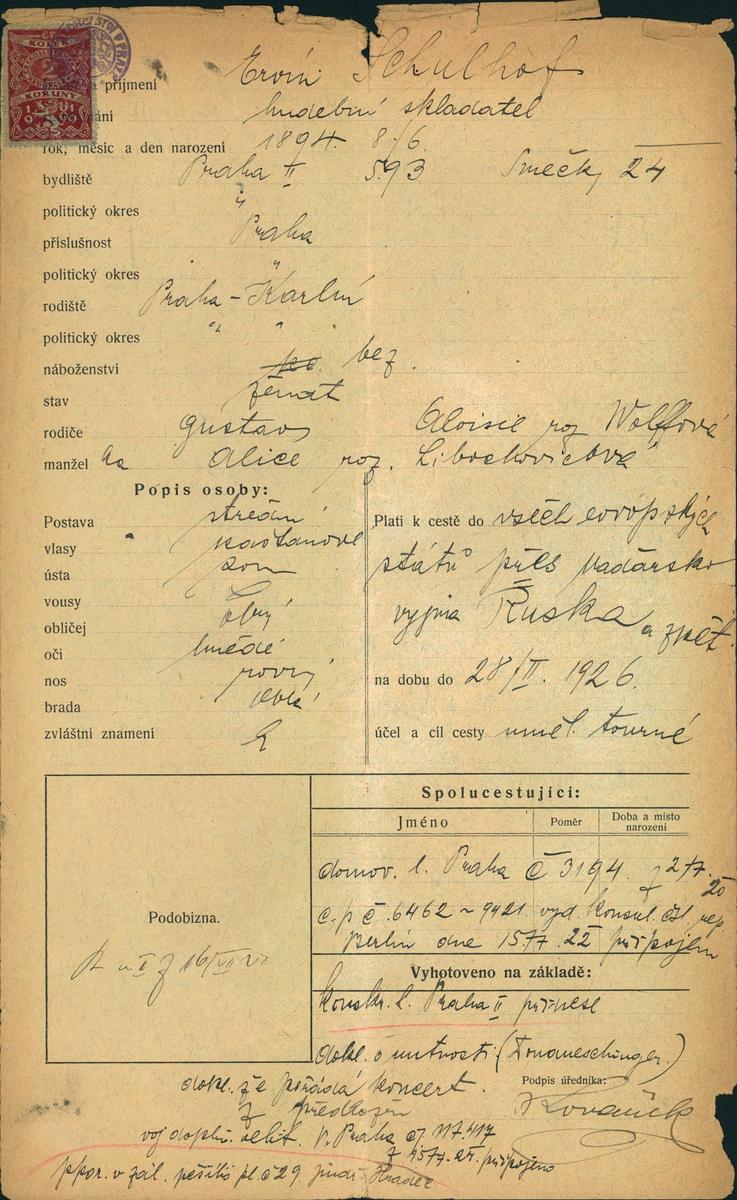 KOLEK
2
KORUNY
1919
příjmení Ervín Schulhof
hudební skladatel
rok, měsíc a den narození 1894. 8/6.
bydliště Praha II 593 Smečky 24
politický okres "
příslušnost Praha
politický okres "
rodiště Praha-Karlín
politický okres " "
náboženství bez
stav ženat
rodiče Gustav Aloisie roz Wolffová
manžel ka Alice roz. Libochovicová
Popis osoby:
Postava střední
vlasy kaštanové
ústa
vousy
obličej obly
oči hnědé
nos rovný
brada
zvláštní znamení
Platí k cestě do všech evropských
států přes Maďarsko
vyjma Ruska a zpět.
na dobu do 28/II. 1926.
účel a cíl cesty uměl. tourné
Podobizna.
Spolucestující:
Jméno Poměr Doba a místo narození
domov. l. Praha č 3194. z 2/7. 20
c. p č. 6462 ~ 9421 vyd. konsul. čsl rep
Berlín dne 15/7. 22 připojem
Vyhotoveno na základě:
konskr. l. Praha II přinese
dokl. o nutnosti (Donaueschingen)
dokl. že pořádá koncert.
Podpis úředníka:
voj doplň. velit. v. Praha čj 117.417
ppor. v zál. pěšího pl. č 29 Jindř. Hradec